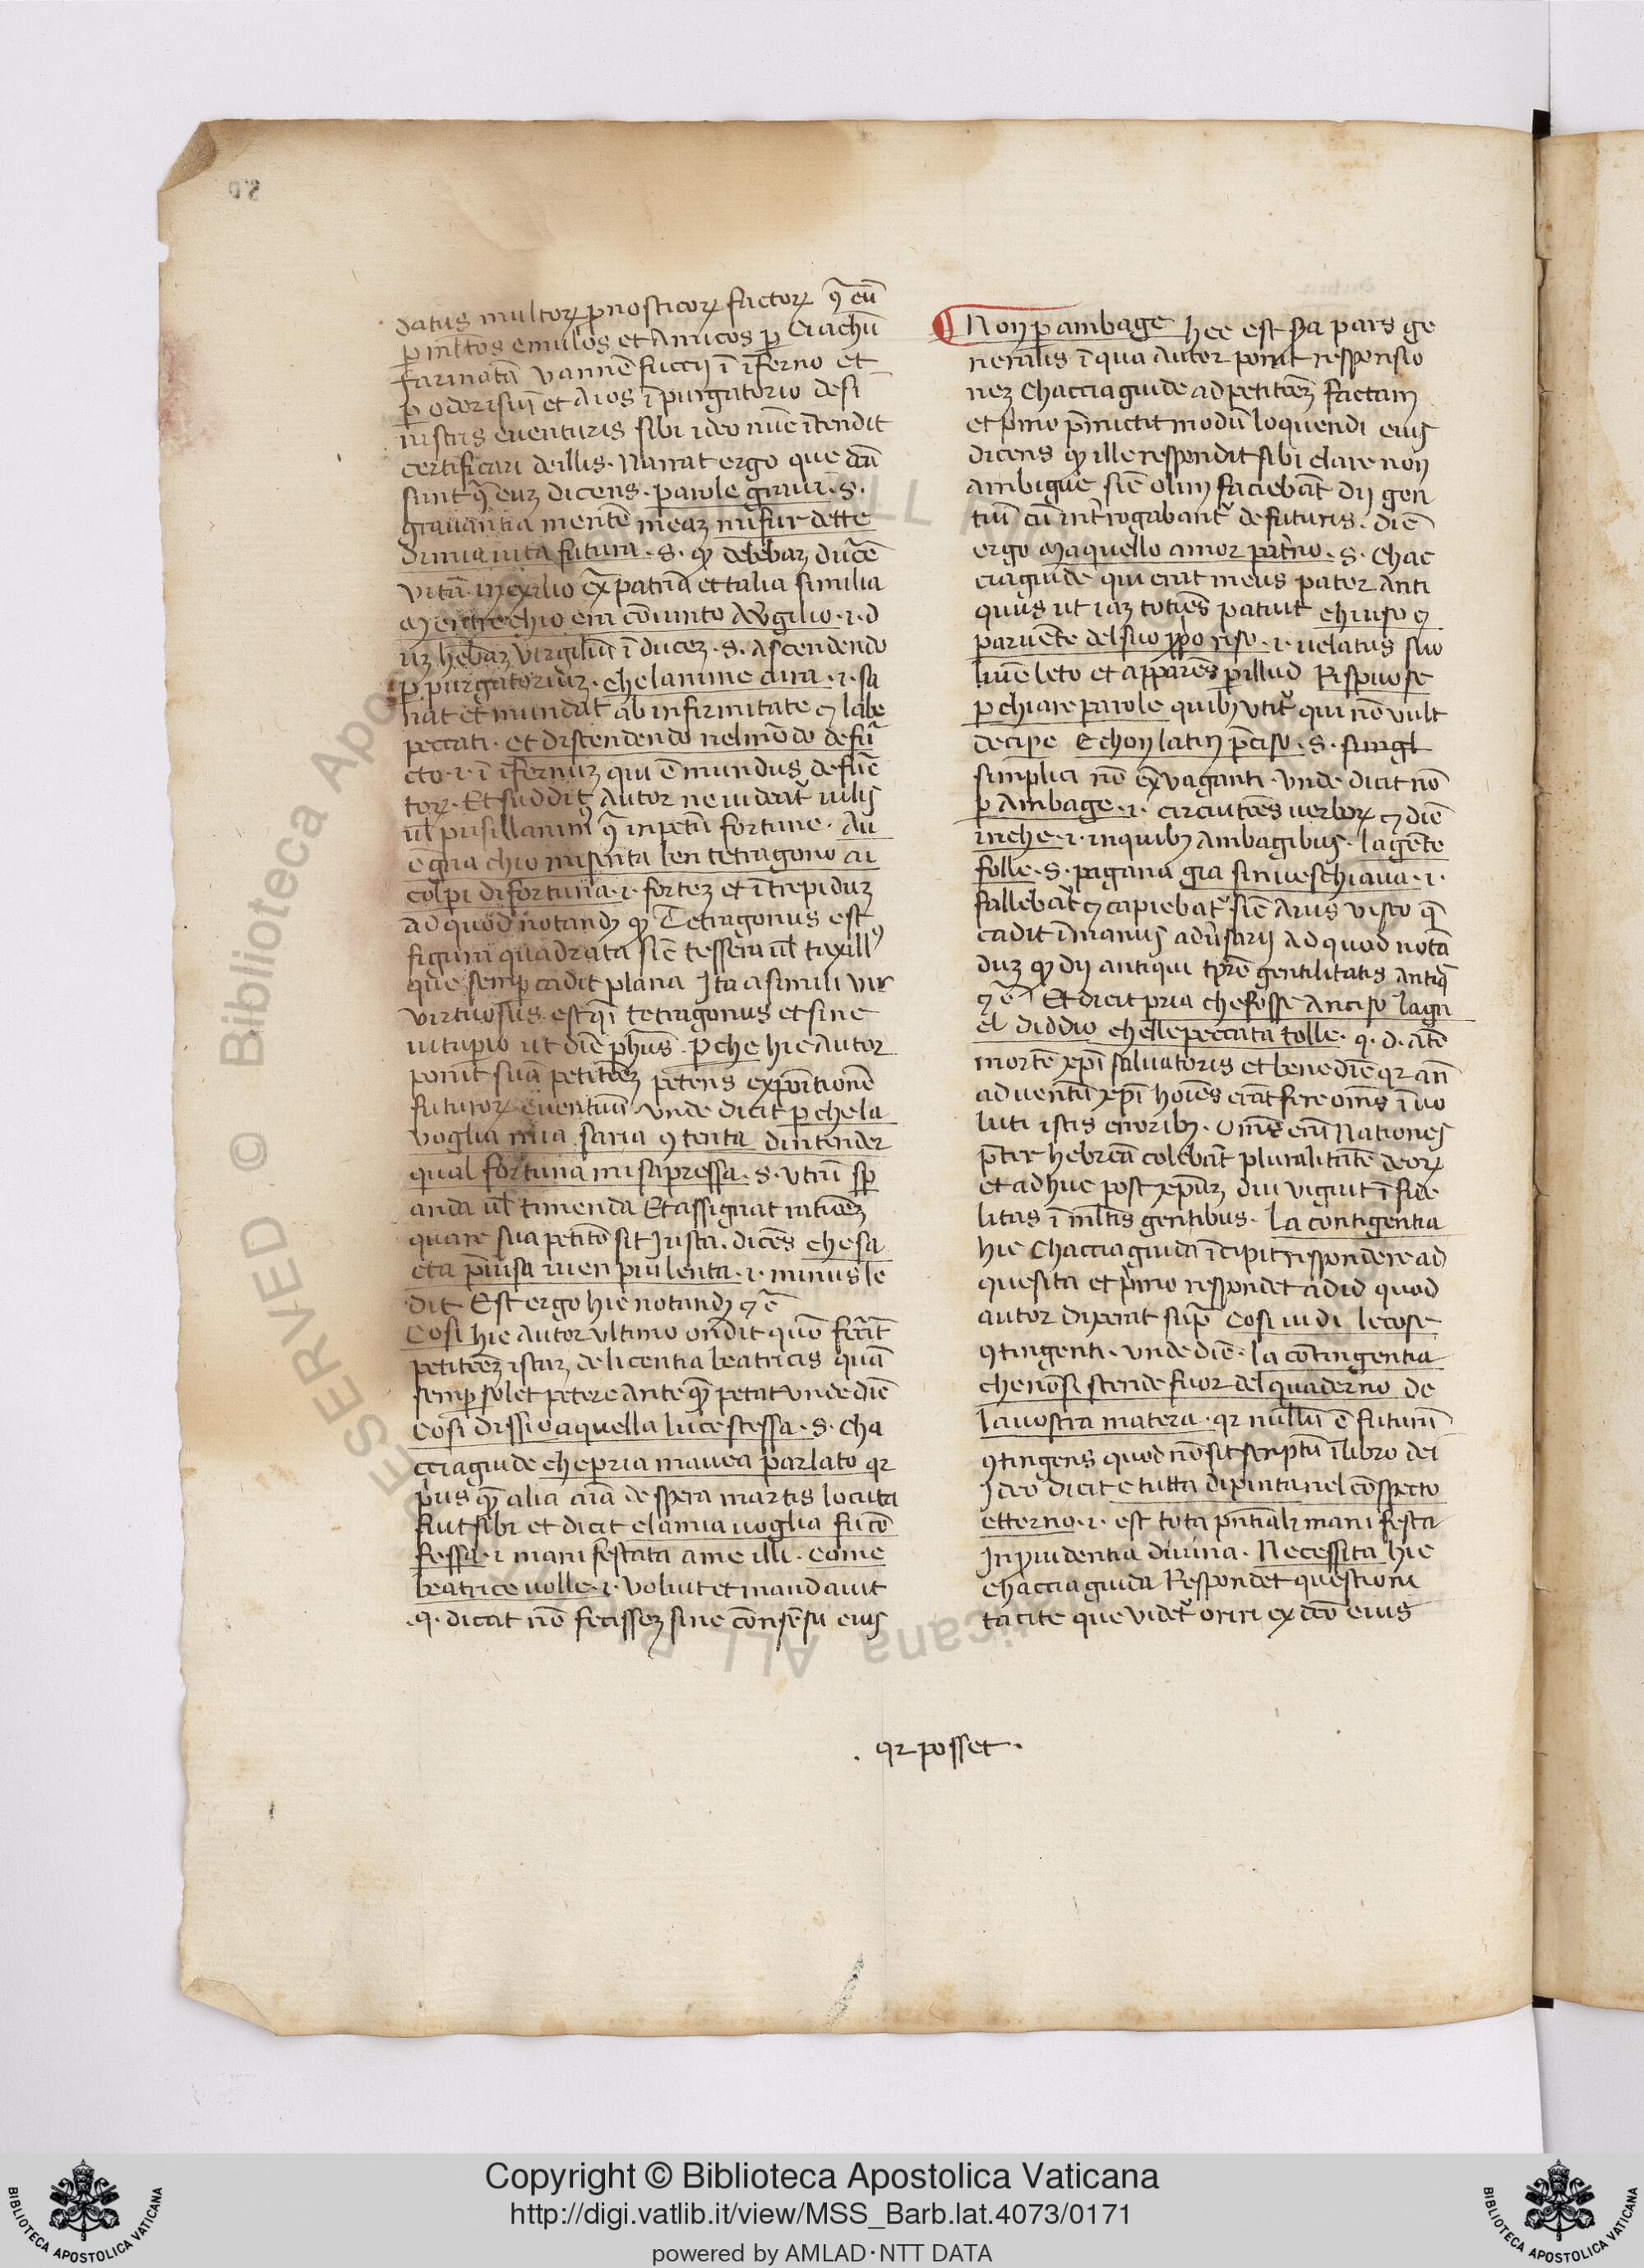 datus multoꝝ pnosticoꝝ factoꝝ ꝯͣ eū
ꝑ ml̄tos emulos et Amicos ꝑ Ciachū
farinatā vannē fuccij ī īferno et
ꝑ oderisiū et Alos ī purgatorio de si
nistris euenturis sibi ideo nūc ītendit
certificari de illis. Narrat ergo que dc̄ā
sunt ꝯͣ euȝ dicens. parole graui. S.
grauantia mentē meaȝ mi fur dette
di mia uita futura. S. ꝙ debebaȝ ducē
vitā in exilio ex̄ patriā et talia similia
Mentre chio era cōiunto A Vgilio .i. d
uȝ hebāȝ virgiliū ī ducez. S. Ascendendo
ꝑ purgatoriuȝ. che lanime cura .i. sa
nat et mundat ab infirmitate ⁊ labe
peccati. et discendendo nel mōdo defū
cto .i. ī īfernuȝ qui ē mundus defūc
toꝝ. Et suddit Autor ne uideat᷑ uilis
ul̄ pusillanimꝯ ꝯͣ inpetū fortune. Au
egna chio mi senta ben tetragono ai
colpi di fortuna .i. forteȝ et ītrepiduȝ
ad quod notandȝ ꝙ Tetragonus est
figura quadrata sic̄ tessera ul̄ taxillꝯ
que semꝑ cadit plana Ita a simili vir
virtuosus est q̄i tetragonus et sine
uituperio ut dic̄ phūs. Perche hic Autor
ponit suā petitōeȝ petens exponitionē
futuroꝝ euentuū vnde dicit ꝑ che la
voglia mia saria ꝯtenta dintender
qual fortuna mi sapressa. S. vtrū sꝑ
anda ul̄ timenda Et assignat ratiōeȝ
quare sua petitō sit Iusta. dicēs che sa
eta p̄uisa uien piu lenta .i. minus le
dit. Est ergo hic notandȝ ⁊ c̄
Cosi hic Autor vltimo ondit quō fecit
petitōeȝ istaȝ de licentia beatricis quā
semꝑ solet petere Ante qȝ petat vnde dic̄
Cosi dissio a quella luce stessa. S. Cha
cciaguide che pria mauea parlato qꝛ
pus qȝ alia aīā de spera martis locuta
fiut sibi et dicit e la mia uoglia fu cō
fessa .i. manifestata a me illi. Come
beatrice uolle .i. Voluit et mandauit
.q. dicat nō fecissez sine cōnsēsu eius
Non ꝑ ambage hec est sᵃ pars ge
neralis ī qua autor ponit responsio
nez Chacciaguide ad petitōeȝ factam
et pͥmo p̄mictit modū loquendi eius
dicens ꝙ ille respondit sibi clare non
ambigue sic̄ olim faciebāt dij gen
tiū cū int̄rogabant᷑ de futuris. Dic̄
ergo Ma quello amor pat̄no. S. Chac
ciaguide qui erat meus pater Anti
quus ut iaȝ totiēs patuit chiuso ⁊
paruēte del suo ꝓpo riso .i. uelatus suo
lumē leto et appares ꝑ illud Rispuose
ꝑ chiare parole quibȝ vtit᷑ qui nō vult
decipe E chon latin p̄ciso. S. singl̄
simplici nō ex̄vaganti. Vnde dicit nō
ꝑ Ambage .i. circuitōes uerboꝝ ⁊ dic̄
in che .i. in quibȝ Ambagibus. la gēte
folle. S. pagana gia sinueschiaua .i.
fallebat᷑ ⁊ capiebat᷑ sic̄ Auis visco q̄
cadit ī manus adūsarij Ad quod notā
duȝ ꝙ dij antiqui tp̄re gentilitatis antiq̄
⁊ c̄ Et dicit pria che fosse anciso lagn
el diddio che le peccata tolle. q. d. ātē
mortē xp̄i saluatoris et bene dic̄ qꝛ an̄
aduentū xp̄i hoīes erāt fere om̄s ī uo
luti istis erroribȝ. Om̄e enī Nationes
p̄ter hebreā colebāt pluralitatē deoꝝ
et adhuc post xp̄uȝ diu viguit ī fide
litas ī ml̄tis gentibus. La contigentia
hic Chacciaguida īcipit rispondere ad
quesita et pͥmo respondet ad id quod
autor dixerat supͣ Cosi uidi le cose
ꝯtingenti. vnde dic̄. la cōtingentia
che nō si stende fuor del quaderno de
la uostra matera. qꝛ nullū ē futurū
ꝯtingens quod nō sit scriptū ī libro dei
Ideo dicit e tutta dipinta nel cōspecto
etterno .i. est tota p̄ntialꝛ manifesta
In ꝓuidentia diuina. Necessita hic
chacciaguida Respondet questioni
tacite que videt᷑ oriri ex dc̄o eius
. qꝛ posset .
Copyright © Biblioteca Apostolica Vaticana
http://digi.vatlib.it/view/MSS_Barb.lat.4073/0171
powered by AMLAD·NTT DATA
BIBLIOTECA APOSTOLICA VATICANA
BIBLIOTECA APOSTOLICA VATICANA